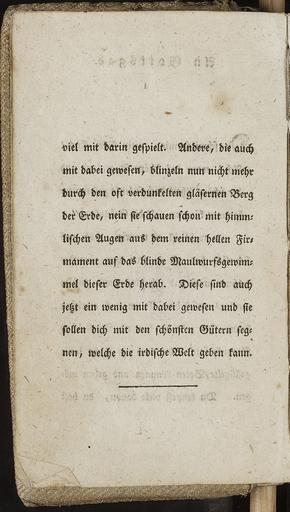 viel mit darin gespielt. Andere, die auch
mit dabei gewesen, blinzeln nun nicht mehr
durch den oft verdunkelten gläsernen Berg
der Erde, nein sie schauen schon mit himm-
lischen Augen aus dem reinen hellen Fir-
mament auf das blinde Maulwurfsgewim-
mel dieser Erde herab. Diese sind auch
jetzt ein wenig mit dabei gewesen und sie
sollen dich mit den schönsten Gütern seg-
nen, welche die irdische Welt geben kann.